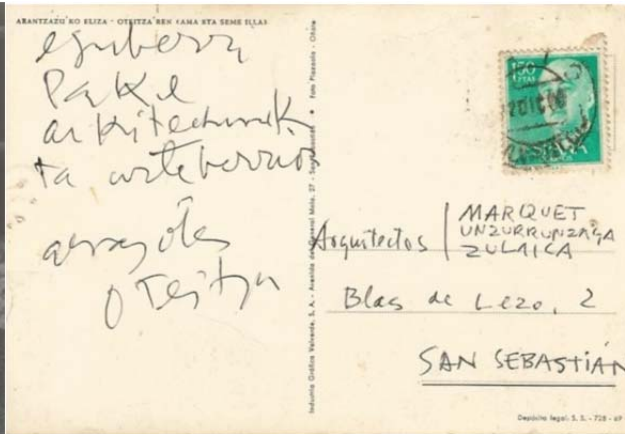 ARANTZAZU KO ELIZA - OTEITZA REN «AMA ETA SEME ILLA»
egubern
Pake
arkitechurik
ta urteberrion
Oteitza
Industria Gráfica Valverde, S. A. - Avenida del General Mola, 27 - San Sebastián • Foto Plazaola - Oñate
150
PTAS
Arquitectos
MARQUET
UNZURRUNZAGA
ZULAICA
Blas de Lezo, 2
SAN SEBASTIÁN
Depósito legal. S. S. - 728 - 69